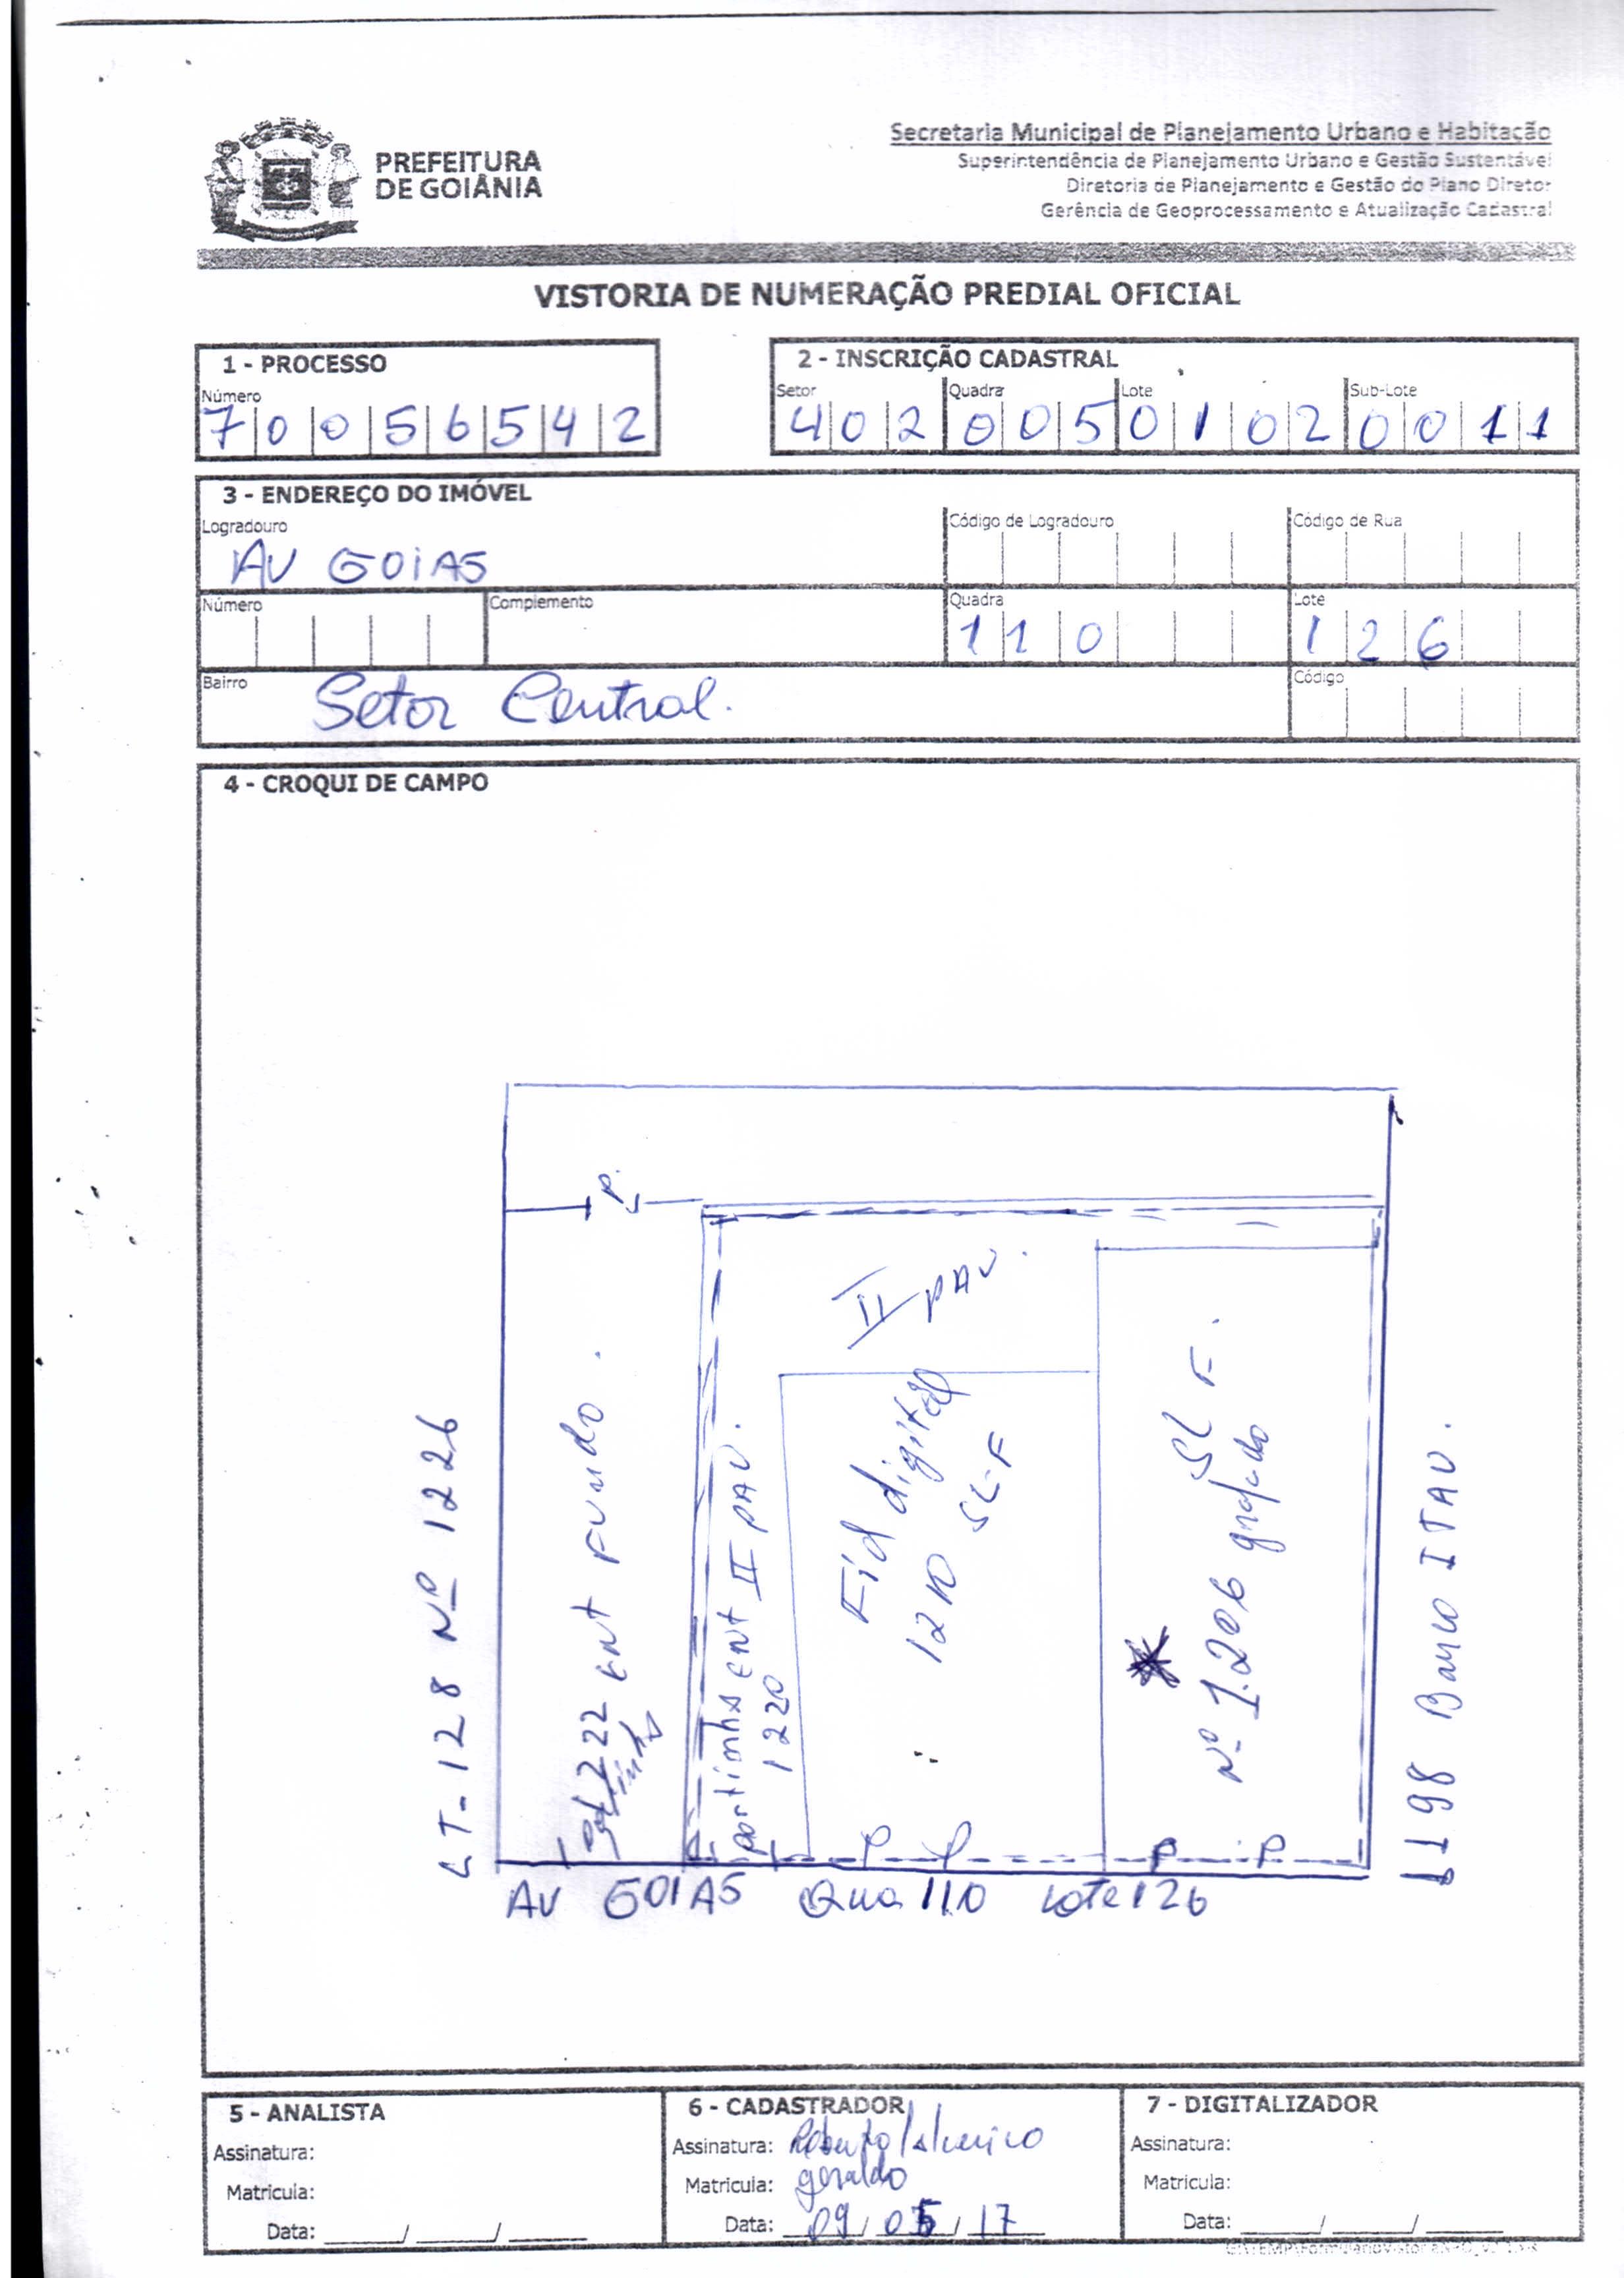 PREFEITURA
DE GOIÂNIA
Secretaria Municipal de Planejamento Urbano e Habitação
Superintendência de Planejamento Urbano e Gestão Sustentável
Diretoria de Planejamento e Gestão do Plano Diretor
Gerência de Geoprocessamento e Atualização Cadastral
VISTORIA DE NUMERAÇÃO PREDIAL OFICIAL
1 - PROCESSO
Número
70056542
2 - INSCRIÇÃO CADASTRAL
Setor Quadra Lote Sub-Lote
402 005 0102 0011
3 - ENDEREÇO DO IMÓVEL
Logradouro Código de Logradouro Código de Rua
AV GOIAS
Número Complemento Quadra Lote
110 126
Bairro Código
Setor Central.
4 - CROQUI DE CAMPO
P.
II PAV.
LT-128 Nº 1226
1222 ENT FUNDO.
portinha ENT II PAV.
1220
Fid digital
1210 SL-F
SL F.
Nº 1206 grafado
1198 Banco ITAU.
P P P P
AV GOIAS Qua 110 Lote 126
5 - ANALISTA
Assinatura:
Matricula:
Data: ___/___/___
6 - CADASTRADOR
Assinatura: Roberto
Matricula: geraldo
Data: 09/05/17
7 - DIGITALIZADOR
Assinatura:
Matricula:
Data: ___/___/___